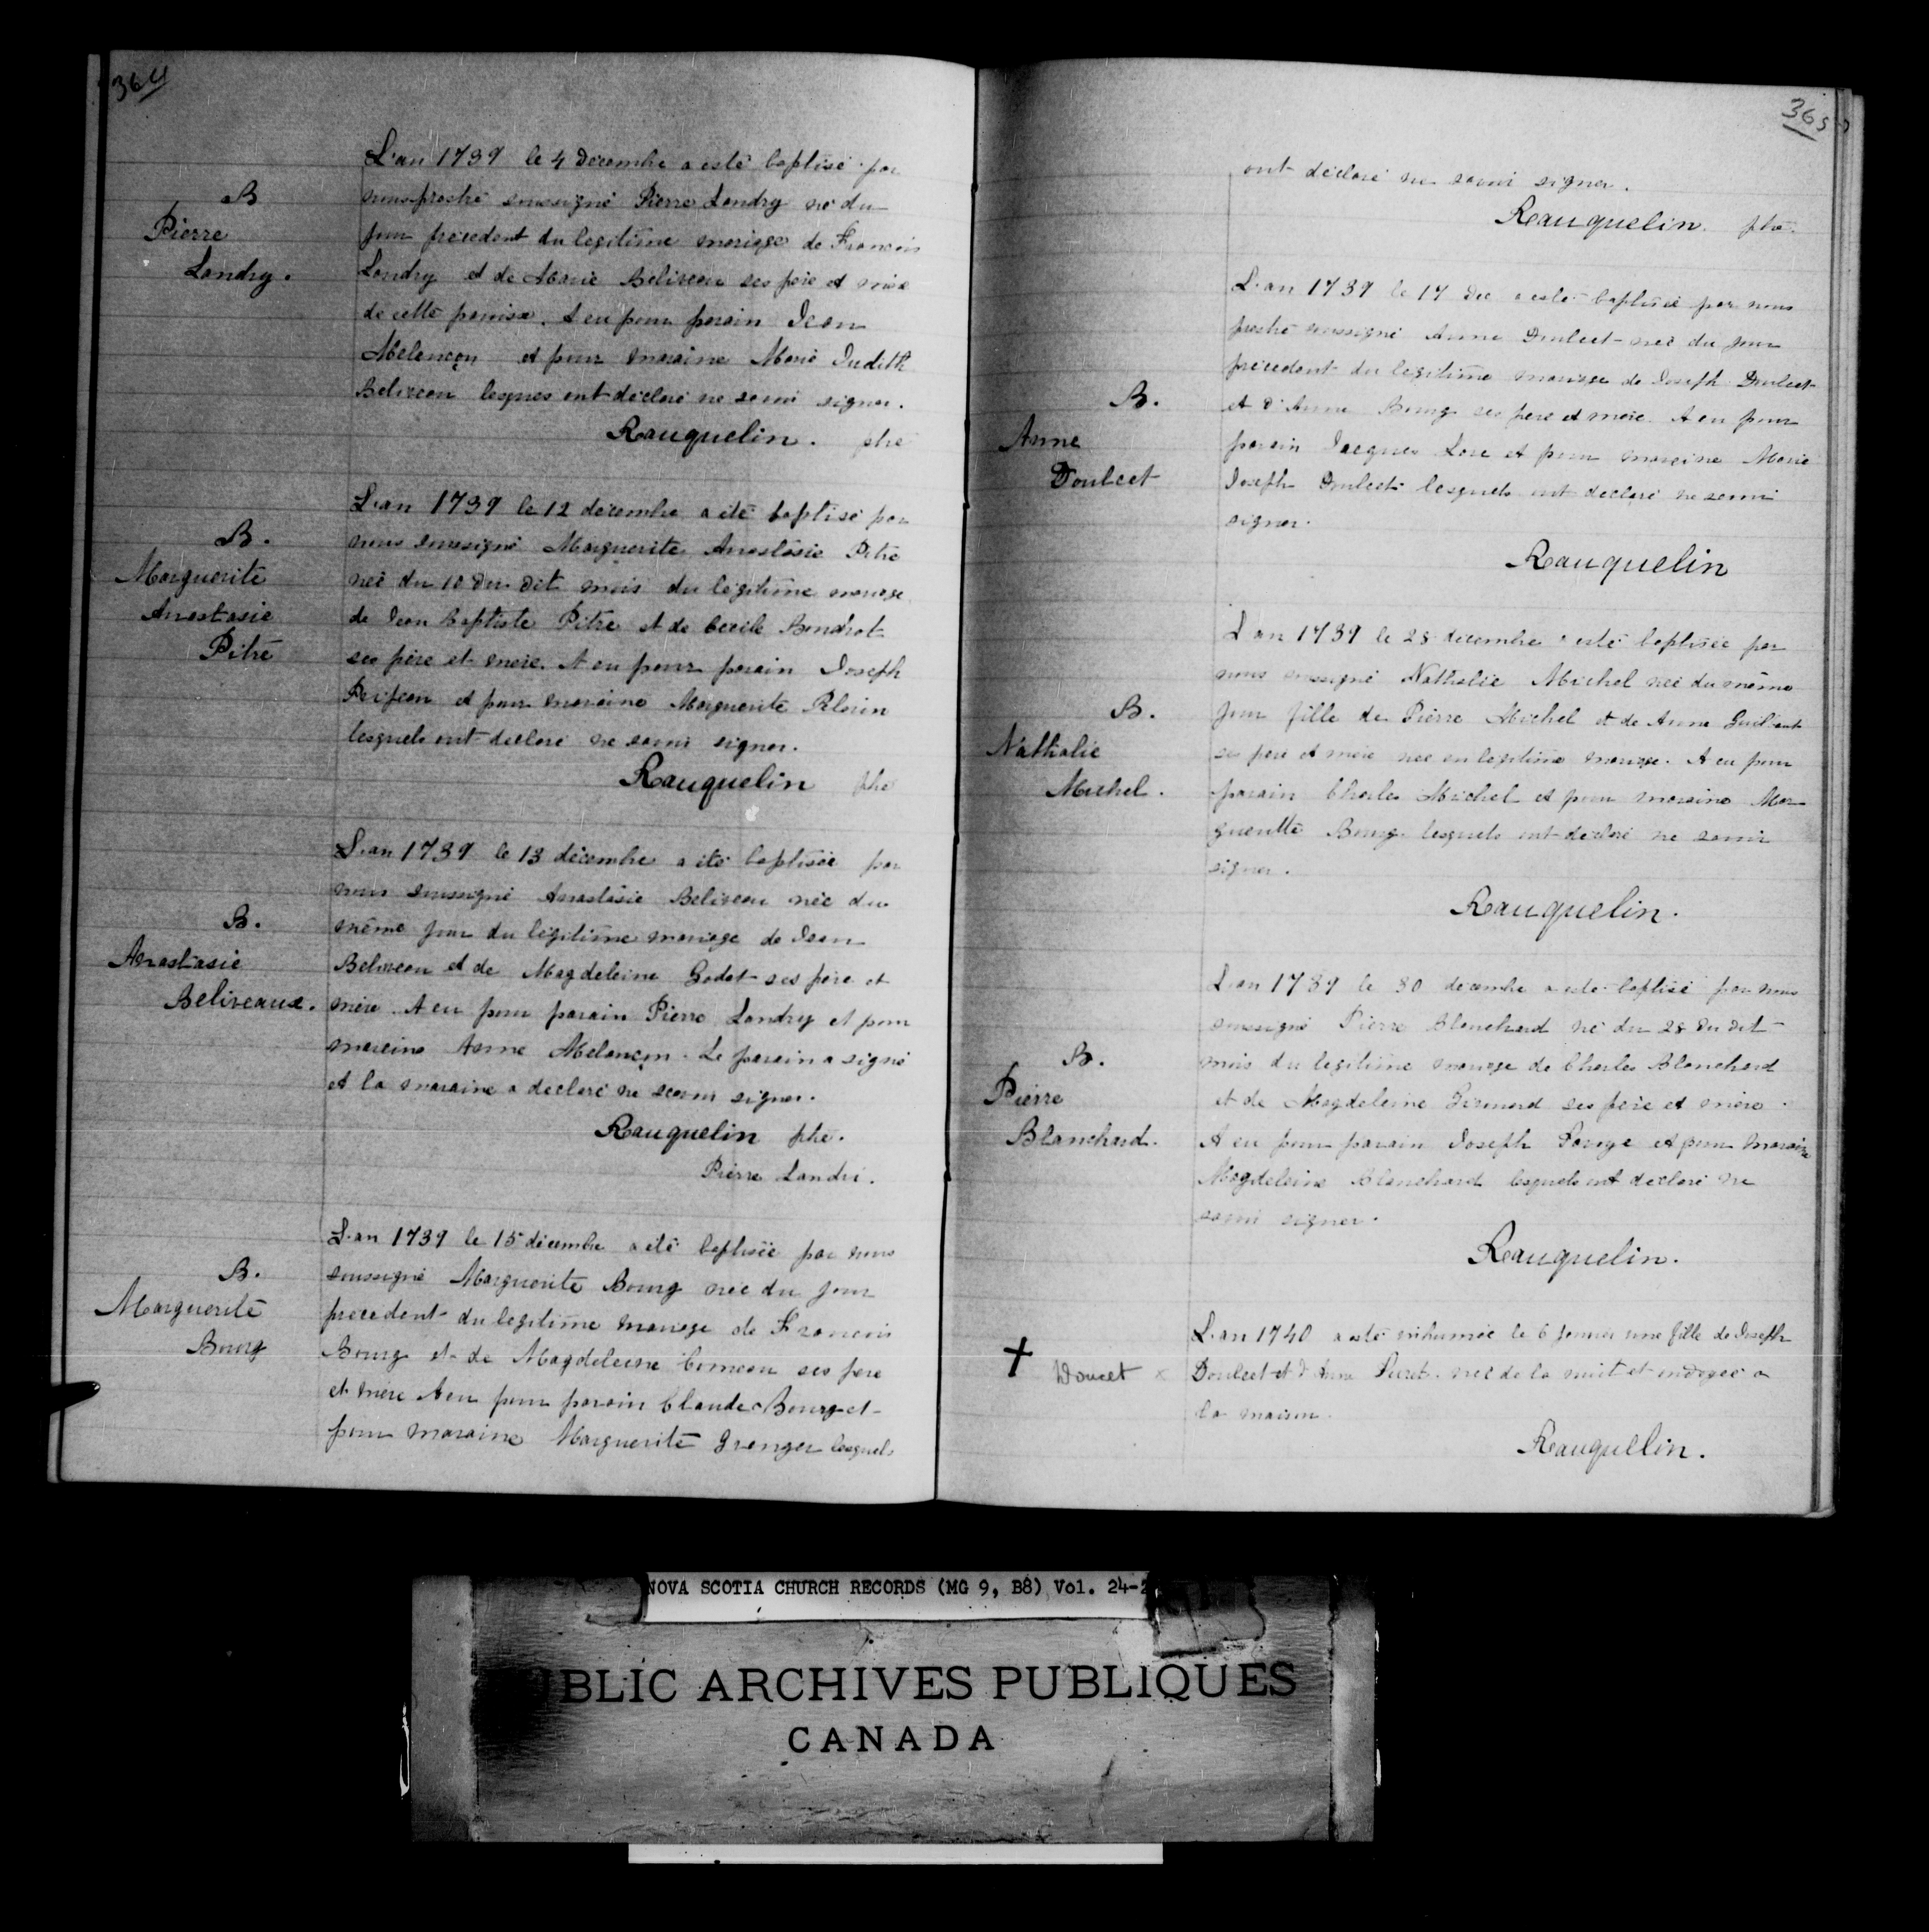 364
B
Pierre
Landry.
L'an 1739 le 4 decembre a esté baptisé par
nous prestre soussigné Pierre Landry né du
jour precedent du legitime mariage de Francois
Landry et de Marie Beliveau ses père et mère
de cette paroisse. A eu pour parain Jean
Melençon et pour maraine Marie Judith
Beliveau lesques ont déclaré ne savoir signer.
Rauquelin. ptre
B.
Marguerite
Anastasie
Pitre
L'an 1739 le 12 décembre a été baptisé par
nous soussigné Marguerite Anastasie Pitre
née du 10 du dit mois du légitime mariage
de Jean Baptiste Pitre et de Cecile Boudrot
ses père et mère. A eu pour parain Joseph
et pour maraine Marguerite
lesquels ont déclaré ne savoir signer.
Rauquelin ptre
B.
Anastasie
Beliveaux.
L'an 1739 le 13 décembre a été baptisée par
nous soussigné Anastasie Beliveau née du
même jour du légitime mariage de Jean
Beliveau et de Magdeleine Godet ses père et
mère. A eu pour parain Pierre Landry et pour
maraine Anne Melançon. Le parain a signé
et la maraine a déclaré ne scavoir signer.
Rauquelin ptre.
Pierre Landri.
B.
Marguerite
Bourg
L'an 1739 le 15 décembre a été baptisée par nous
soussigné Marguerite Bourg née du jour
precedent du legitime mariage de Francois
Bourg et de Magdeleine Comeau ses pere
et mere A eu pour parain Claude Bourg et
pour maraine Marguerite Granger lesquels
365
ont déclaré ne savoir signer.
Rauquelin. ptre.
B.
Anne
Doulcet
L'an 1739 le 17 dec a esté baptisée par nous
prestre soussigné Anne Doulcet née du jour
précedent du legitime mariage de Joseph Doulcet
et d'Anne Bourg ses pere et mere. A eu pour
parain Jacques Lore et pour maraine Marie
Joseph Doulcet lesquels ont declaré ne savoir
signer.
Rauquelin
B.
Nathalie
Michel.
L'an 1739 le 28 decembre a esté baptisée par
nous soussigné Nathalie Michel née du même
jour fille de Pierre Michel et de Anne
ses pere et mere née en legitime mariage. A eu pour
parain Charles Michel et pour maraine Mar
gueritte Bourg lesquels ont declaré ne savoir
signer.
Rauquelin.
B.
Pierre
Blanchard.
L'an 1739 le 30 decembre a esté baptisé par nous
soussigné Pierre Blanchard né du 28 du dit
mois du legitime mariage de Charles Blanchard
et de Magdeleine Girouard ses père et mère.
A eu pour parain Joseph et pour maraine
Magdeleine Blanchard lesquels ont declaré ne
savoir signer.
Rauquelin.
† Doucet x
L'an 1740 a esté inhumée le 6 janvier une fille de Joseph
Doulcet et d'Anne née de la nuit et ondoyée a
la maison.
Rauquelin.
NOVA SCOTIA CHURCH RECORDS (MG 9, B8) Vol. 24-2
BLIC ARCHIVES PUBLIQUES
CANADA